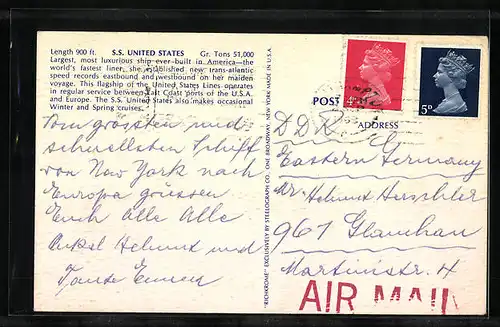 Length 900 ft. S.S. UNITED STATES Gr. Tons 51,000
Largest, most luxurious ship ever built in America—the
world's fastest liner, she established new trans-atlantic
speed records eastbound and westbound on her maiden
voyage. This flagship of the United States Lines operates
in regular service between East Coast ports of the U.S.A.
and Europe. The S.S. United States also makes occasional
Winter and Spring cruises.
Vom grössten und
schnellsten Schiff
von New York nach
Europa grüssen
Euch alle Alle
Onkel Helmut und
Tante
EXCLUSIVELY BY STEELOGRAPH CO., ONE BROADWAY, NEW YORK. MADE IN U.S.A.
4D
5P
POST
ADDRESS
DDR
Eastern Germany
Helmut
961 Glauchau
Martinistr. 4
AIR MAIL